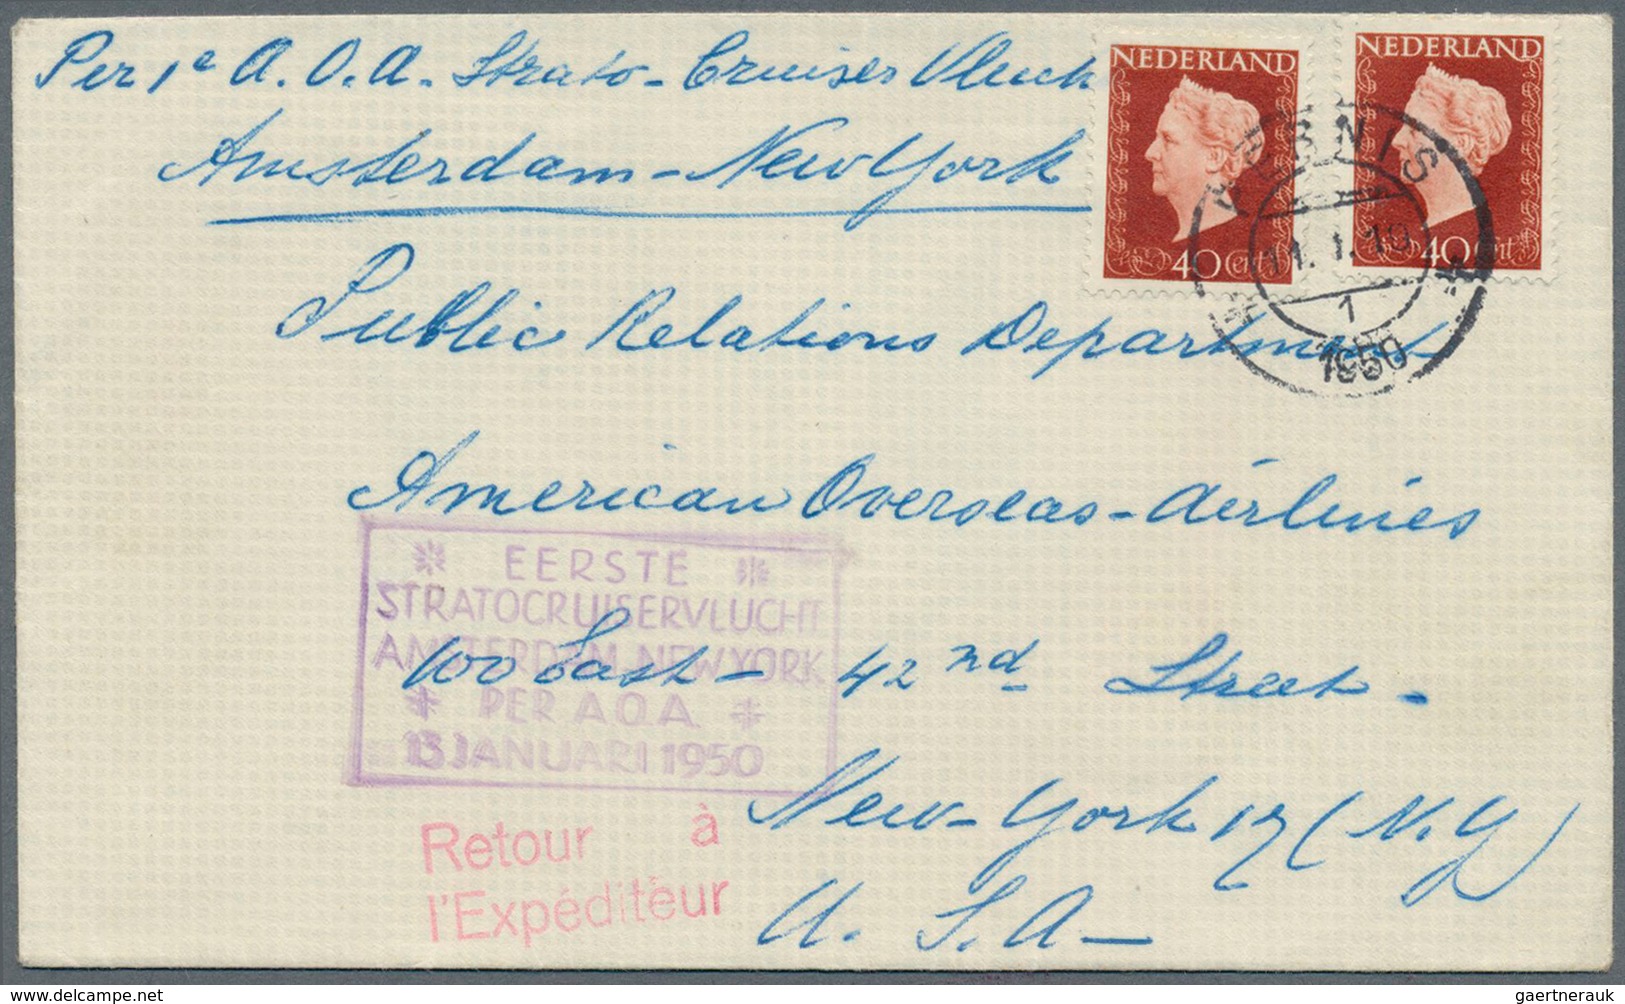 Per 1e A.O.A. Strato-Cruiser Vlucht
Amsterdam-New York
NEDERLAND
40 Cent
NEDERLAND
40 Cent
PERNIS
11.1.19
1
1950
Public Relations Department
American Overseas-Airlines
EERSTE
STRATOCRUISERVLUCHT
AMSTERDAM-NEW YORK
PER A.O.A.
13 JANUARI 1950
100 East - 42nd Street -
New-York 17 (N.Y)
U.S.A-
Retour à
l'Expéditeur
gaertnerauk @ delcampe.net